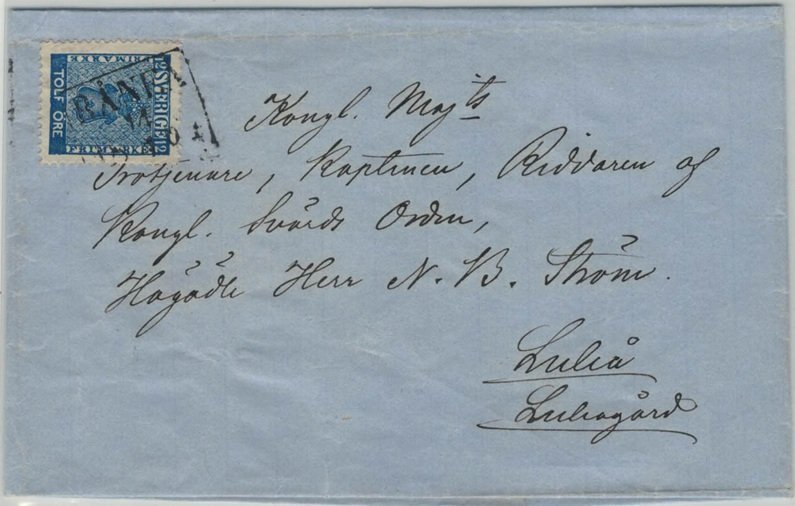 FRIMÄRKE
12 SVERIGE 12
TOLF ÖRE
FRIMÄRKE
RÅNEÅ
14
Kongl. Maj:ts
Trotjenare, Kaptenen, Riddaren af
Kongl. Svärds Orden,
Högädle Herr N. B. Ström.
Luleå
Luleagård